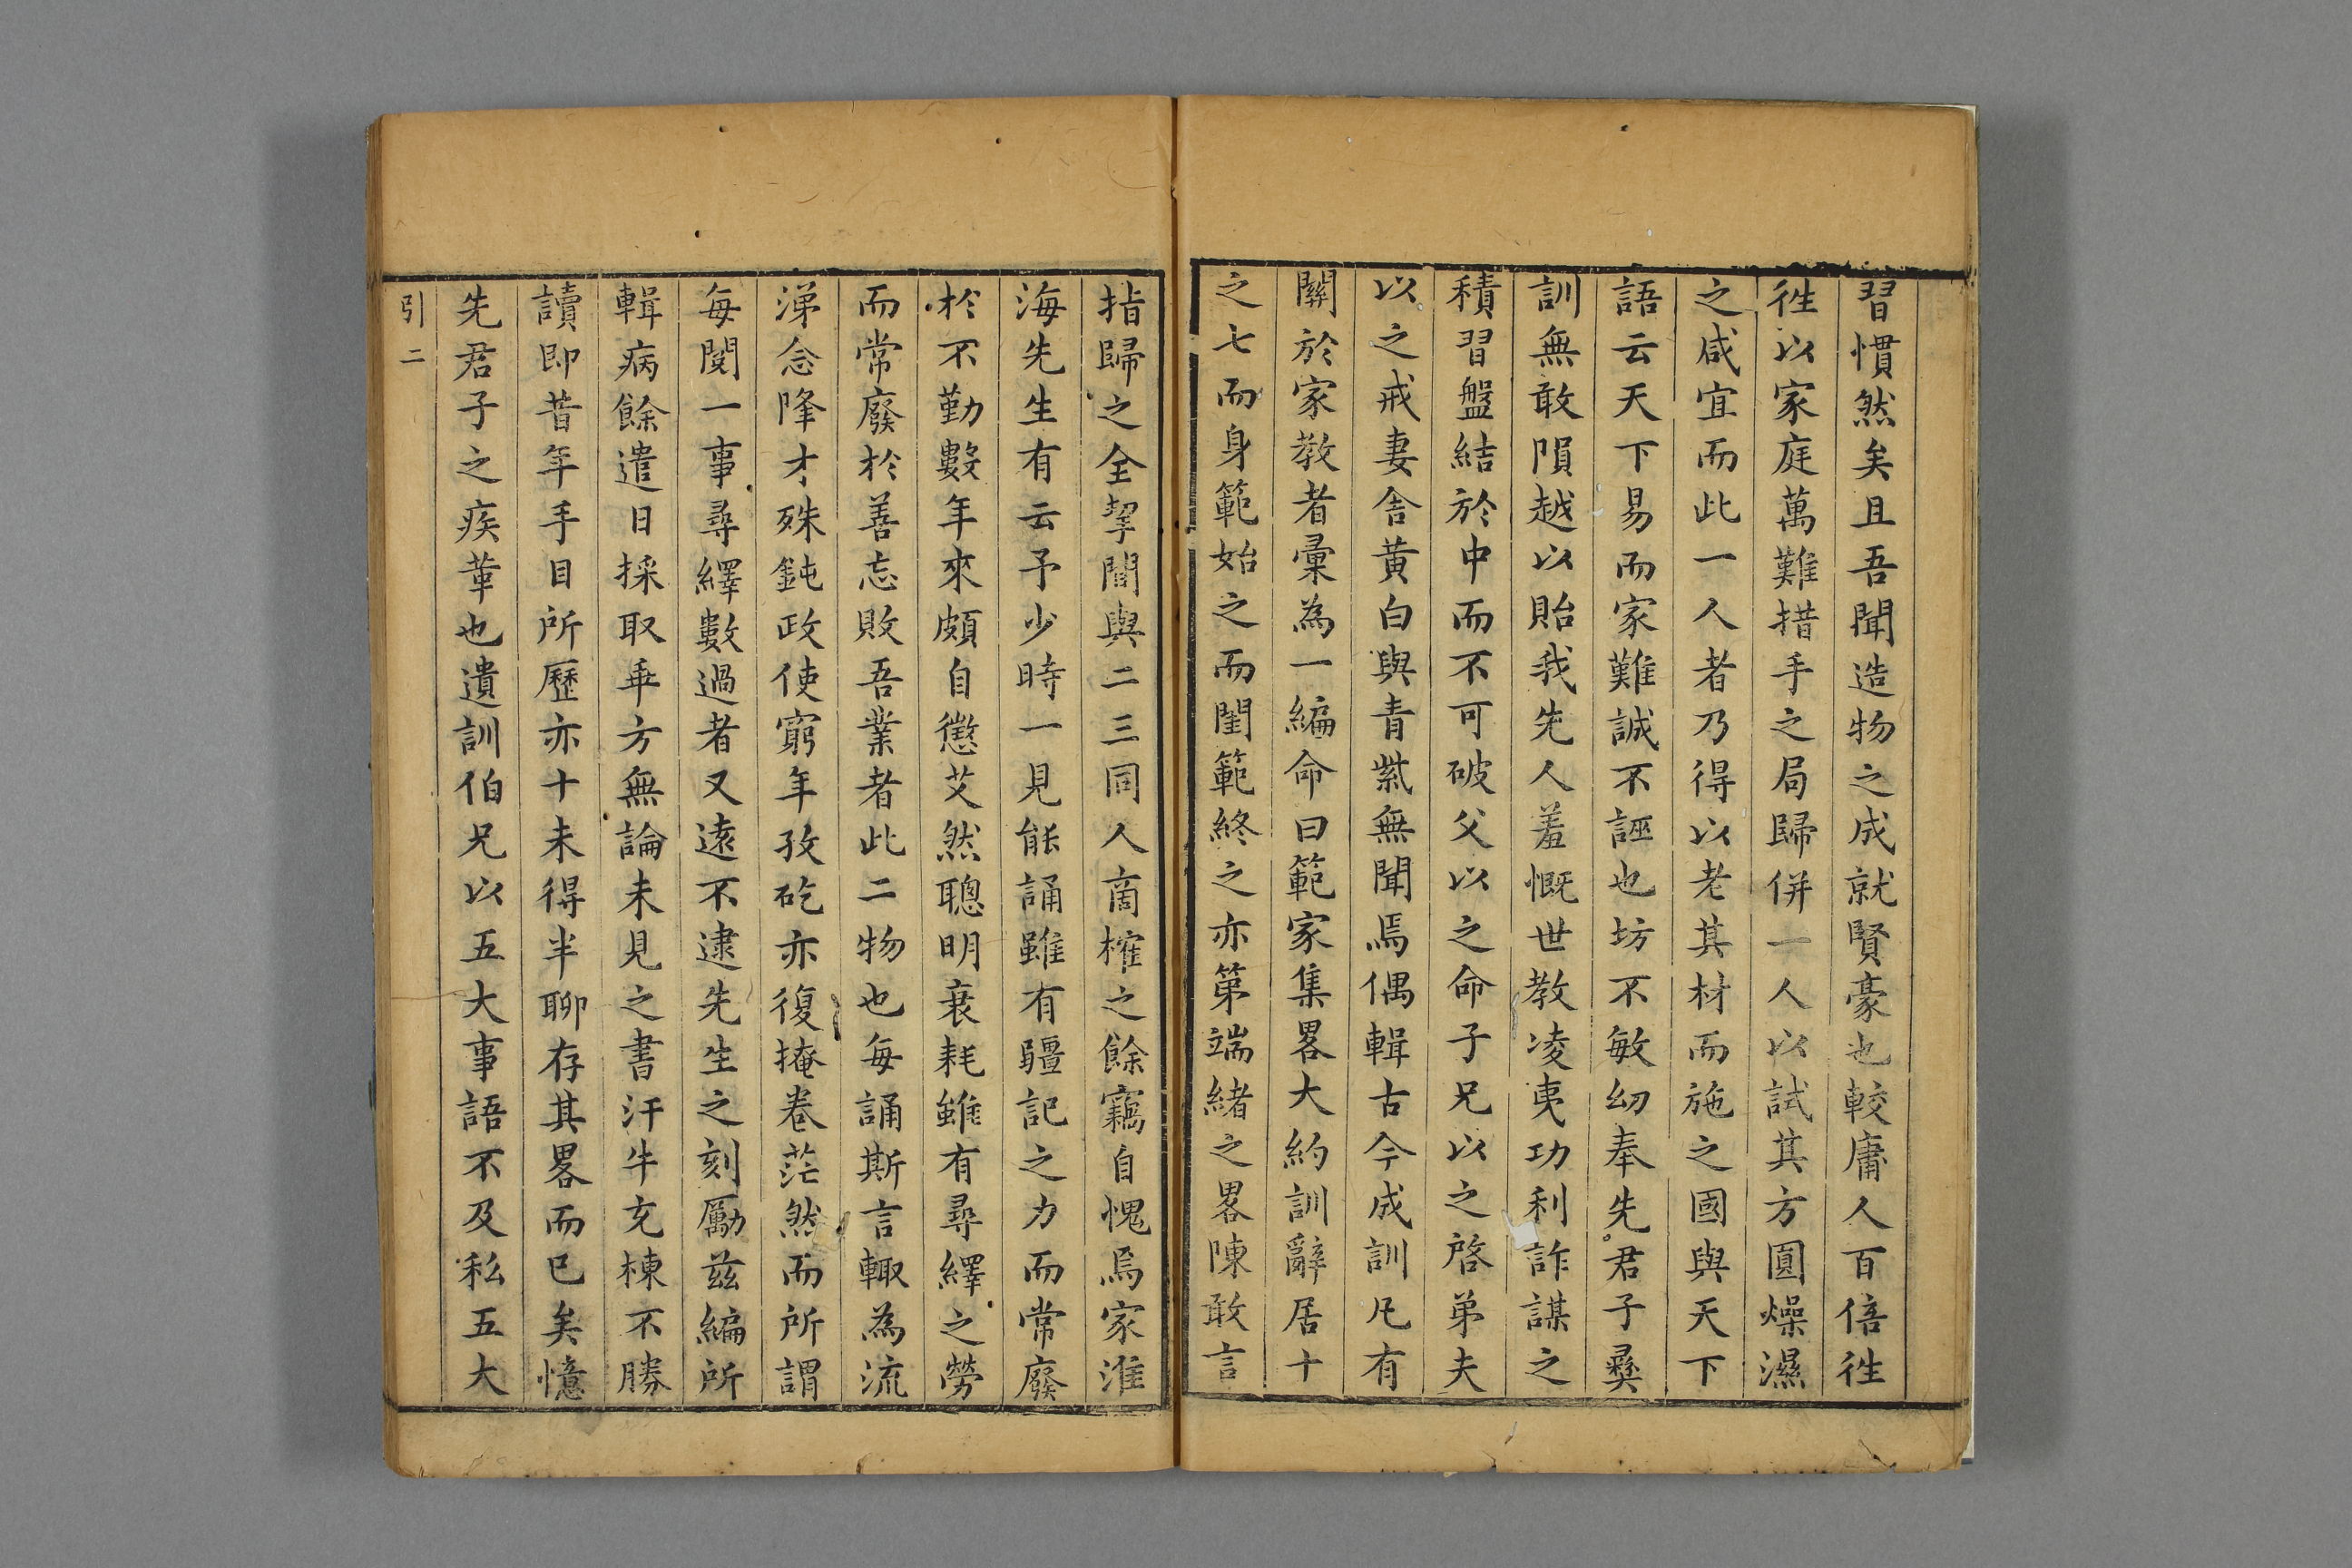 習慣然矣且吾聞造物之成就賢豪也較庸人百倍徃
徃以家庭萬難措手之局歸併一人以試其方圓燥濕
之咸宜而此一人者乃得以老其材而施之國與天下
語云天下易而家難誠不誣也坊不敏幼奉先君子彜
訓無敢隕越以貽我先人羞慨世教凌夷功利詐謀之
積習盤結於中而不可破父以之命子兄以之啓弟夫
以之戒妻舍黄白與青紫無聞焉偶輯古今成訓凡有
關於家教者彚為一編命曰範家集畧大約訓辭居十
之七而身範始之而閨範終之亦第端緒之畧陳敢言
指歸之全挈間與二三同人啇榷之餘竊自愧焉家淮
海先生有云予少時一見能誦雖有疆記之力而常廢
於不勤數年來頗自懲艾然聰明衰耗雖有尋繹之勞
而常廢於善忘敗吾業者此二物也每誦斯言輙為流
涕念隆才殊鈍政使窮年孜矻亦復掩卷茫然而所謂
每閱一事尋繹數過者又遠不逮先生之刻厲兹編所
輯病餘遣日採取乖方無論未見之書汗牛充棟不勝
讀即昔年手目所歷亦十未得半聊存其畧而已矣憶
先君子之疾革也遺訓伯兄以五大事語不及私五大
引 二